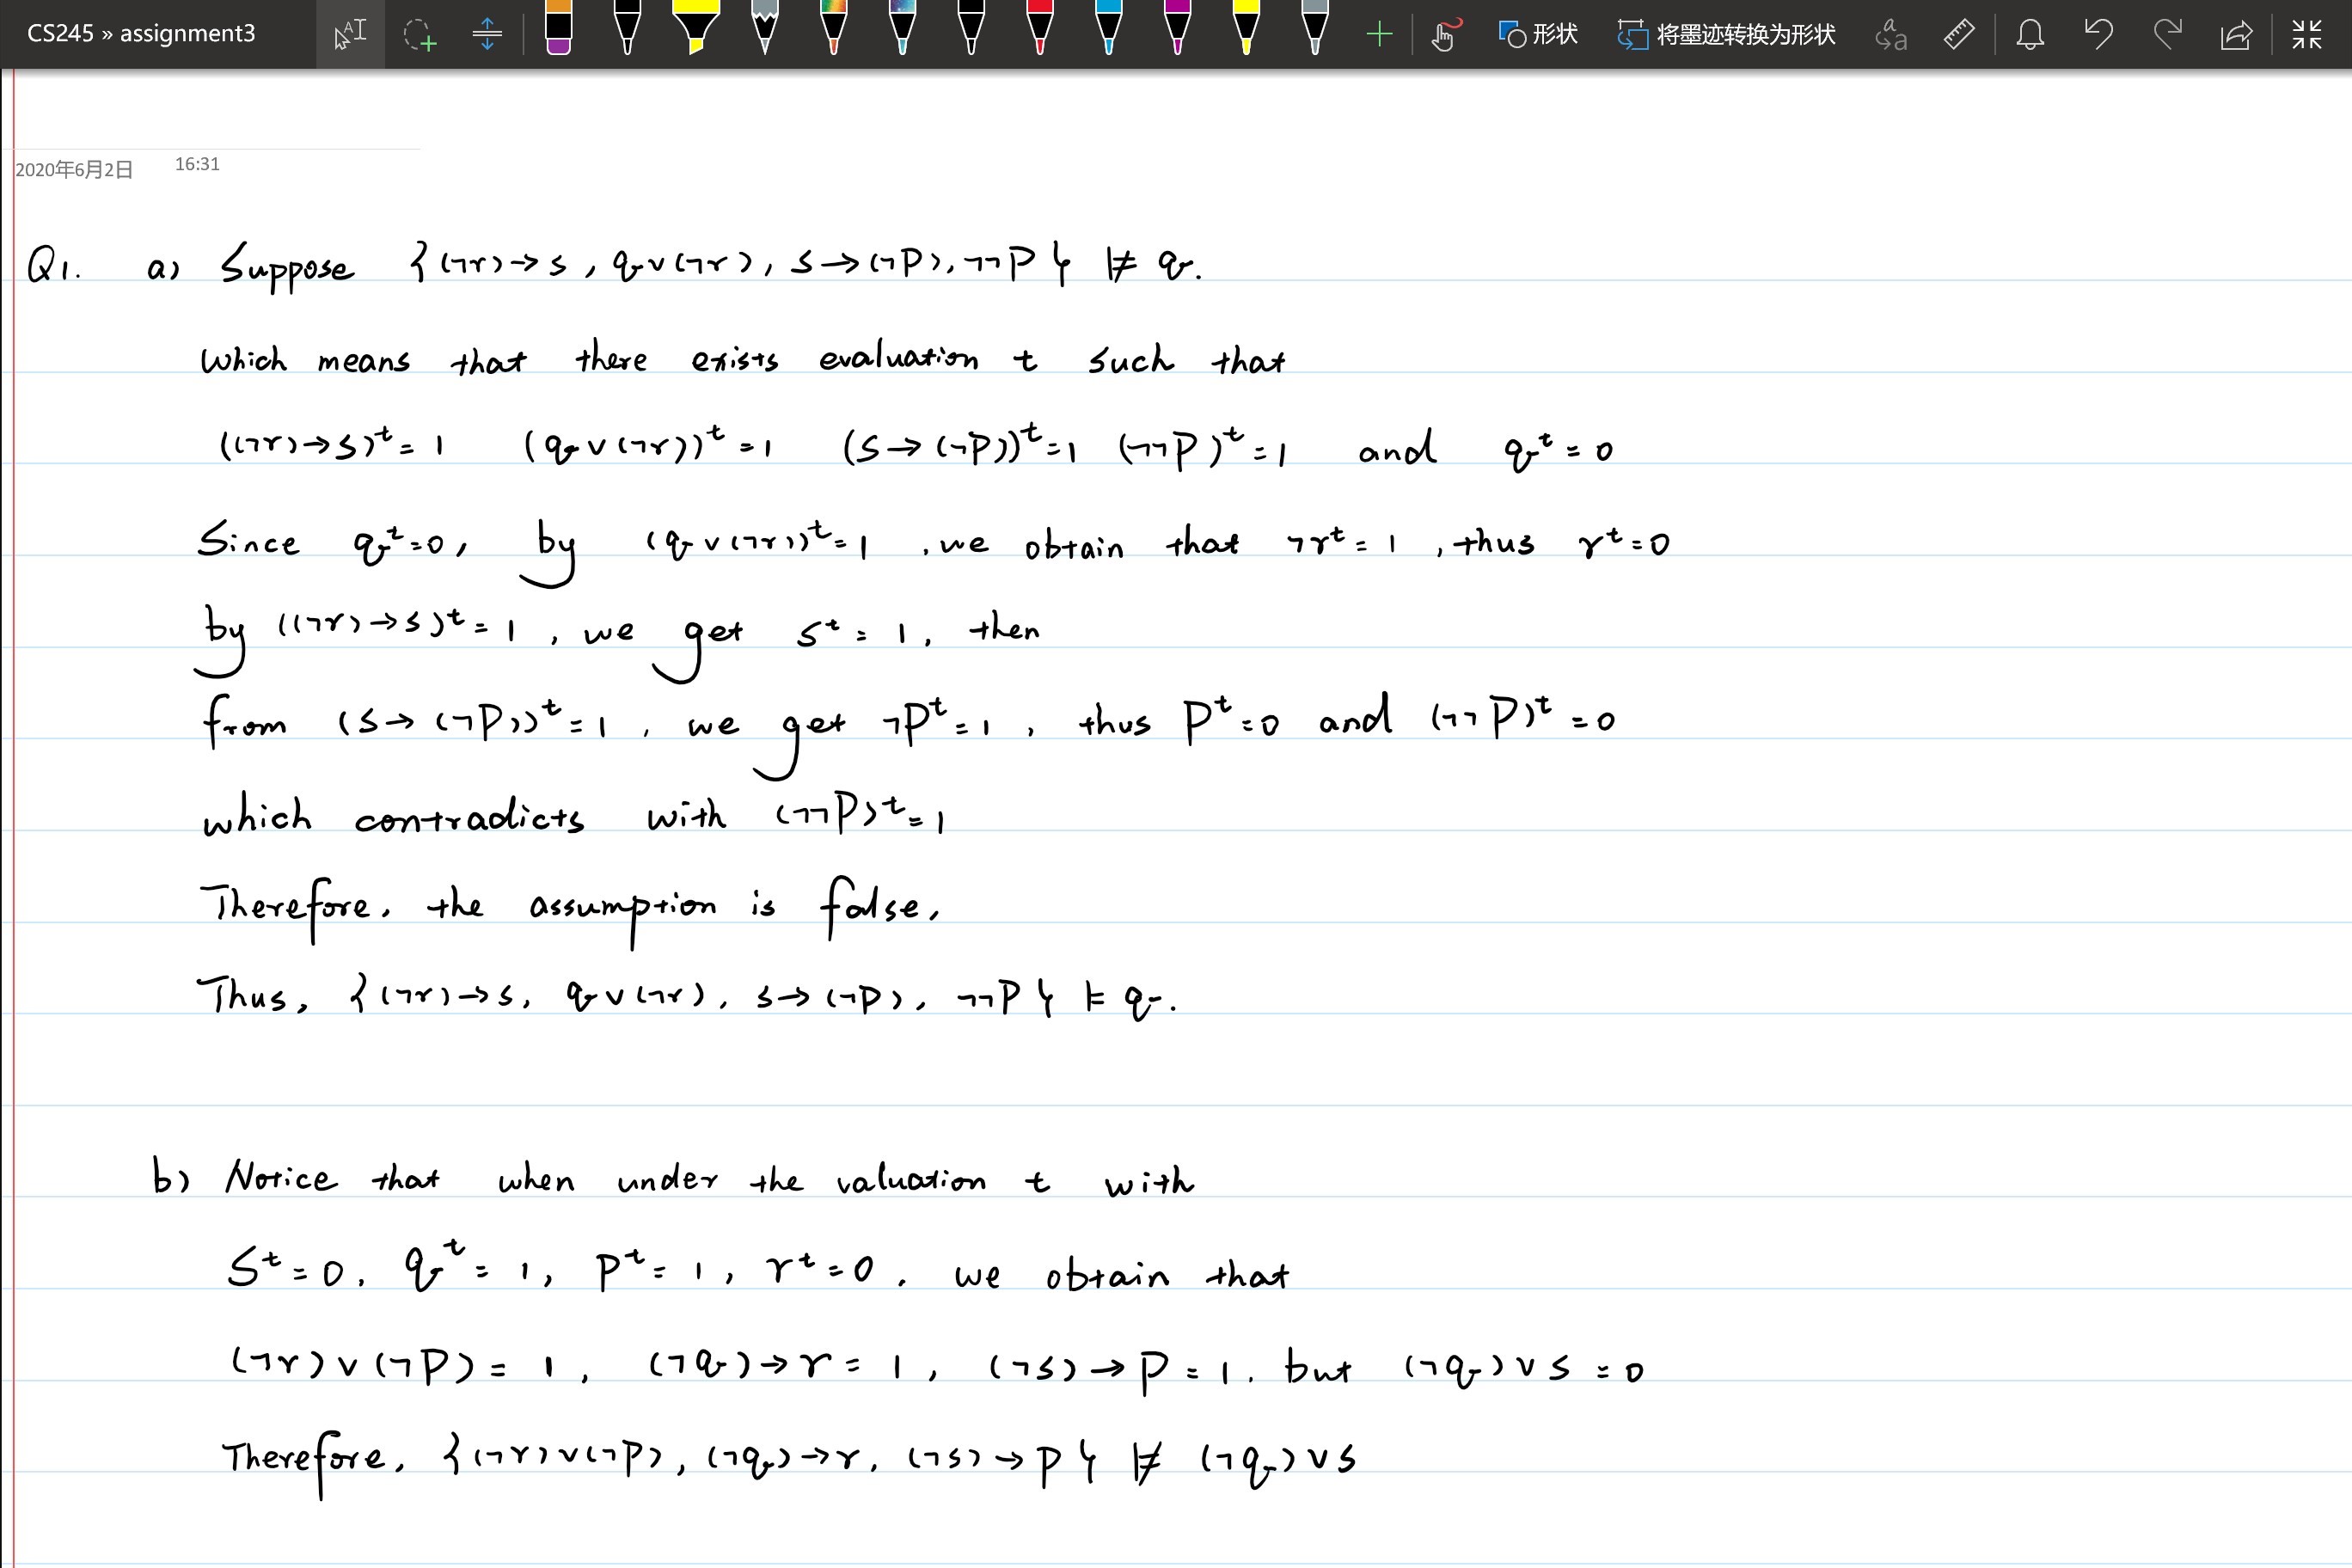 CS245 » assignment3
形状
将墨迹转换为形状
2020年6月2日 16:31
Q1. a) Suppose {(¬r)→s, q∨(¬r), s→(¬p), ¬¬p} ⊭ q.
which means that there exists evaluation t such that
((¬r)→s)ᵗ=1 (q∨(¬r))ᵗ=1 (s→(¬p))ᵗ=1 (¬¬p)ᵗ=1 and qᵗ=0
Since qᵗ=0, by (q∨(¬r))ᵗ=1, we obtain that ¬rᵗ=1, thus rᵗ=0
by ((¬r)→s)ᵗ=1, we get sᵗ=1, then
from (s→(¬p))ᵗ=1, we get ¬pᵗ=1, thus pᵗ=0 and (¬¬p)ᵗ=0
which contradicts with (¬¬p)ᵗ=1
Therefore, the assumption is false,
Thus, {(¬r)→s, q∨(¬r), s→(¬p), ¬¬p} ⊨ q.
b) Notice that when under the valuation t with
sᵗ=0, qᵗ=1, pᵗ=1, rᵗ=0, we obtain that
(¬r)∨(¬p)=1, (¬q)→r=1, (¬s)→p=1, but (¬q)∨s=0
Therefore, {(¬r)∨(¬p), (¬q)→r, (¬s)→p} ⊭ (¬q)∨s